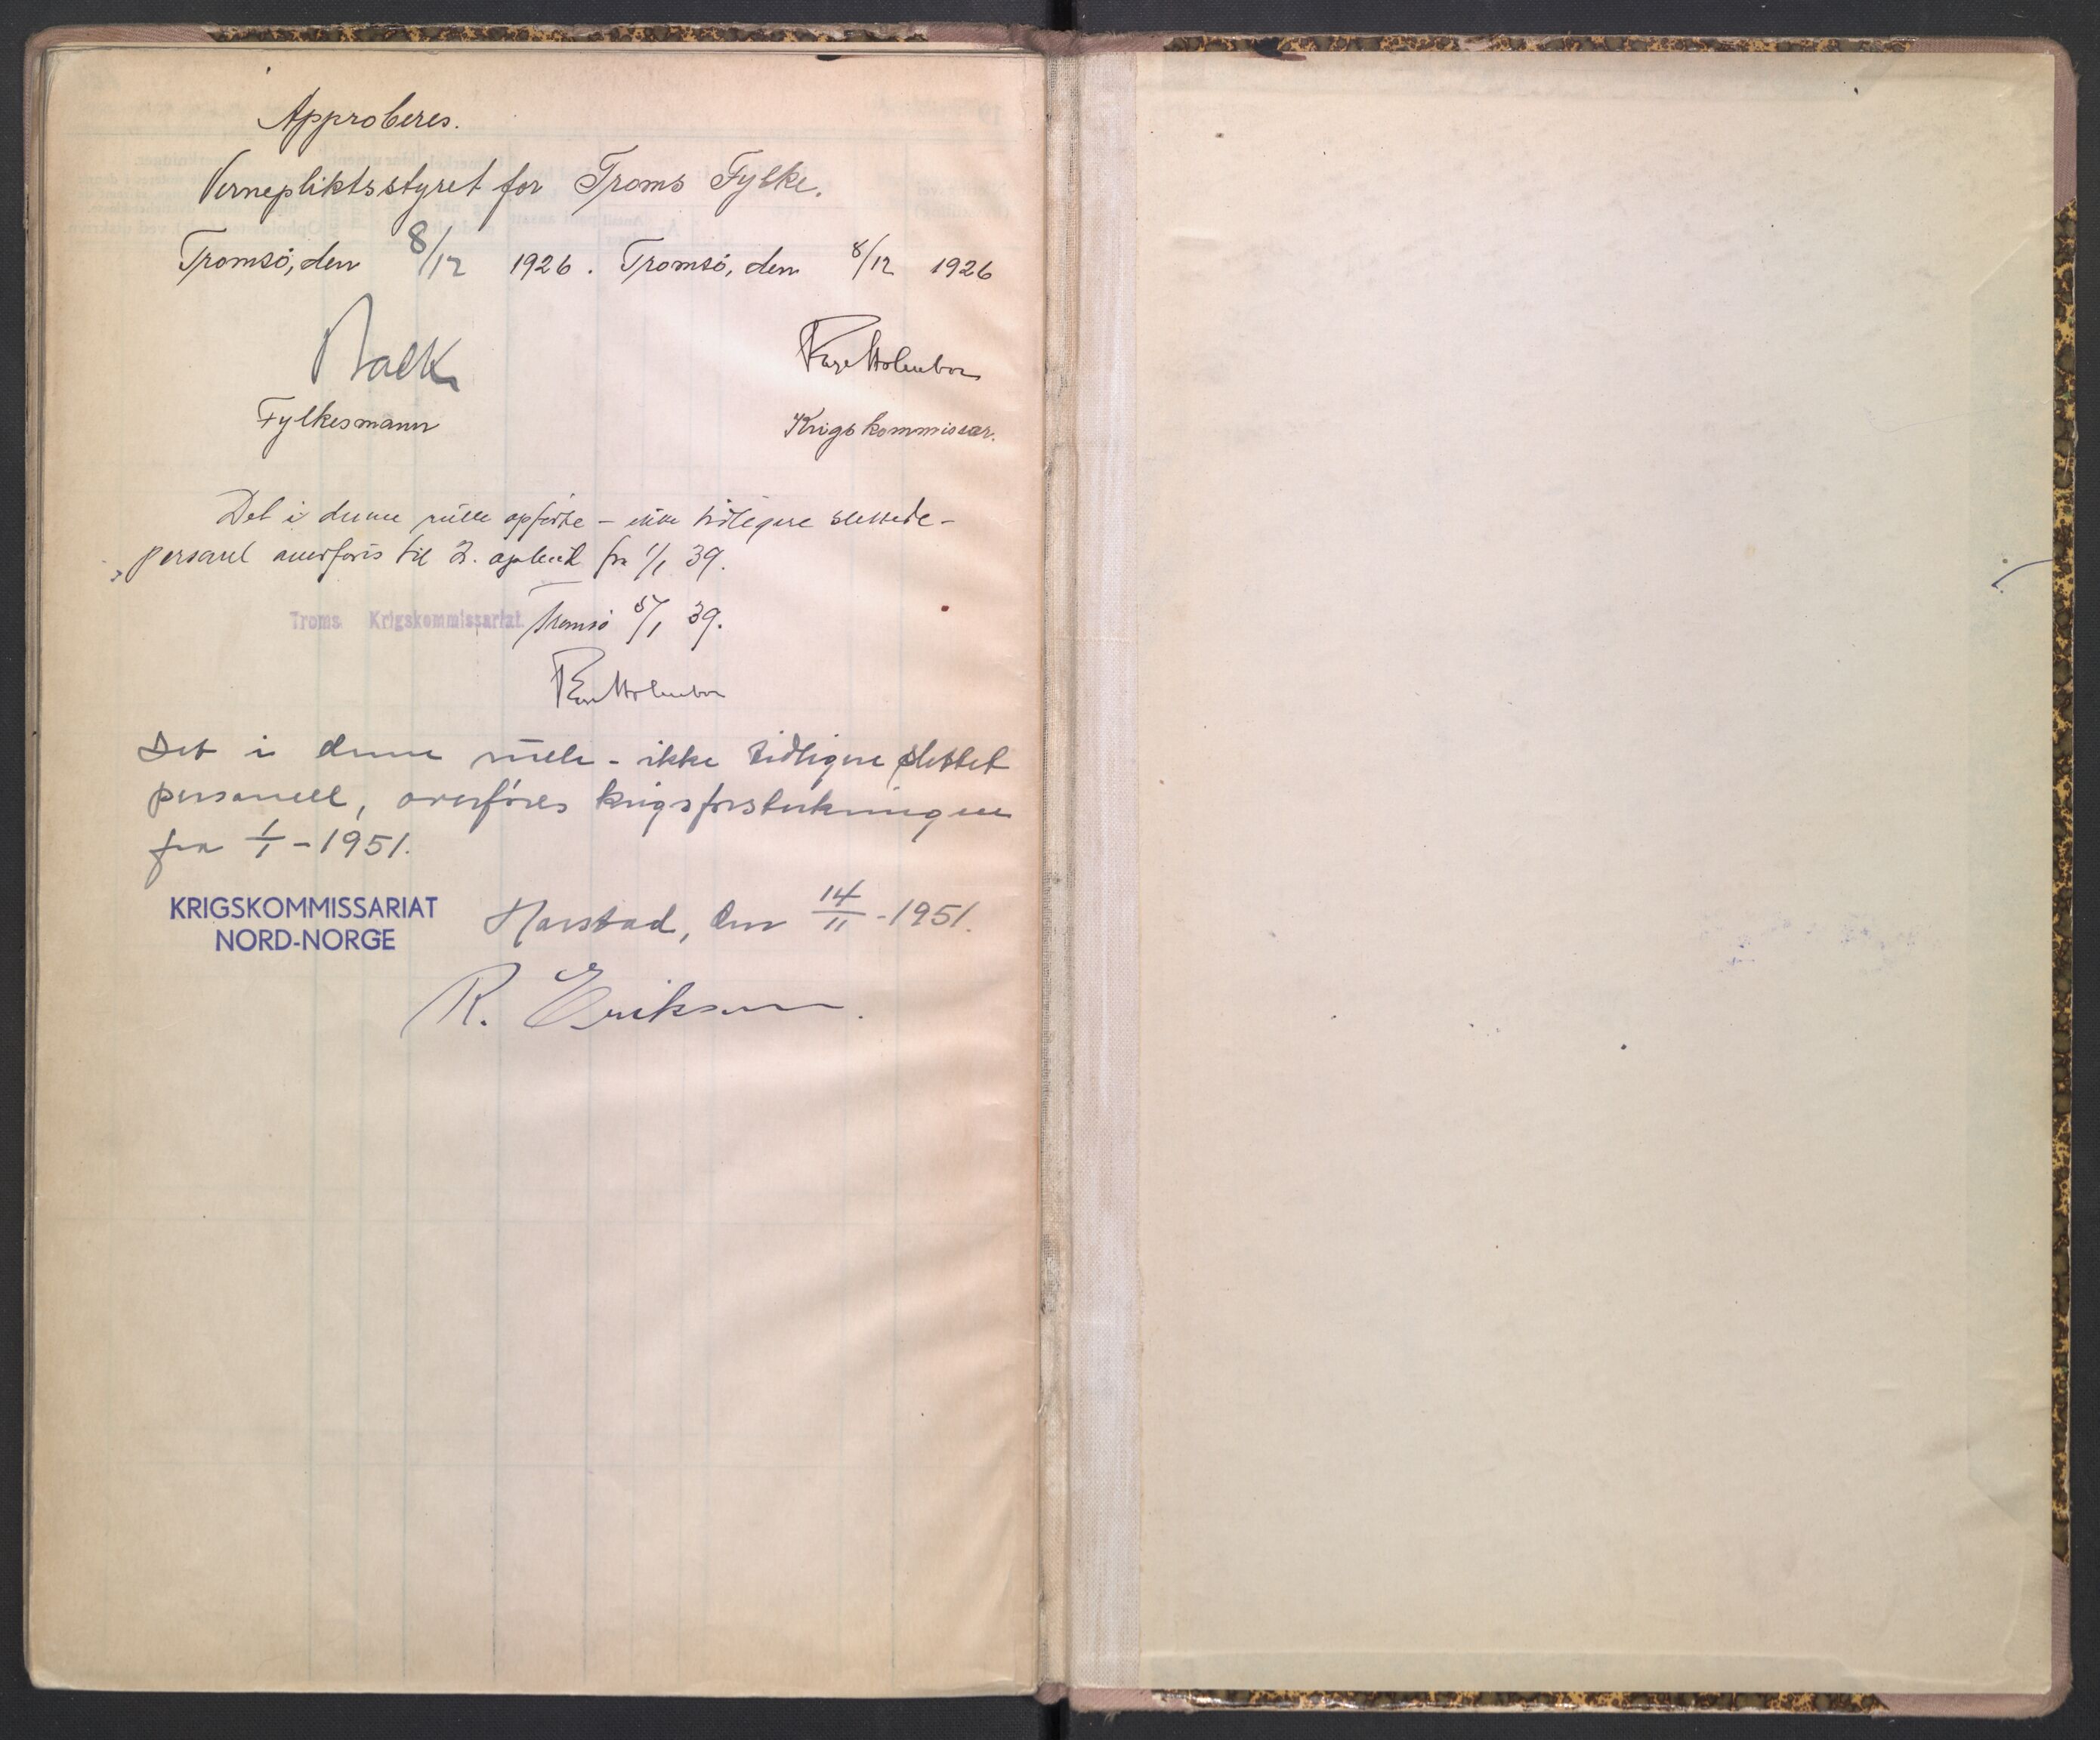 Approberes.
Vernepliktsstyret for Troms Fylke.
Tromsö, den 8/12 1926. Tromsö, den 8/12 1926
Fylkesmann Krigskommissær.
Det i denne rulle opførte – ikke tidligere slettede –
personel overföres til 2. opbud fra 1/1 39.
Troms Krigskommissariat. Tromsö 5/1 39.
Det i denne rulle – ikke tidligere slettet
personell, overföres krigsforsterkningen
fra 1/1 – 1951.
KRIGSKOMMISSARIAT
NORD-NORGE
Harstad, den 14/11 - 1951.
R. Eriksen.